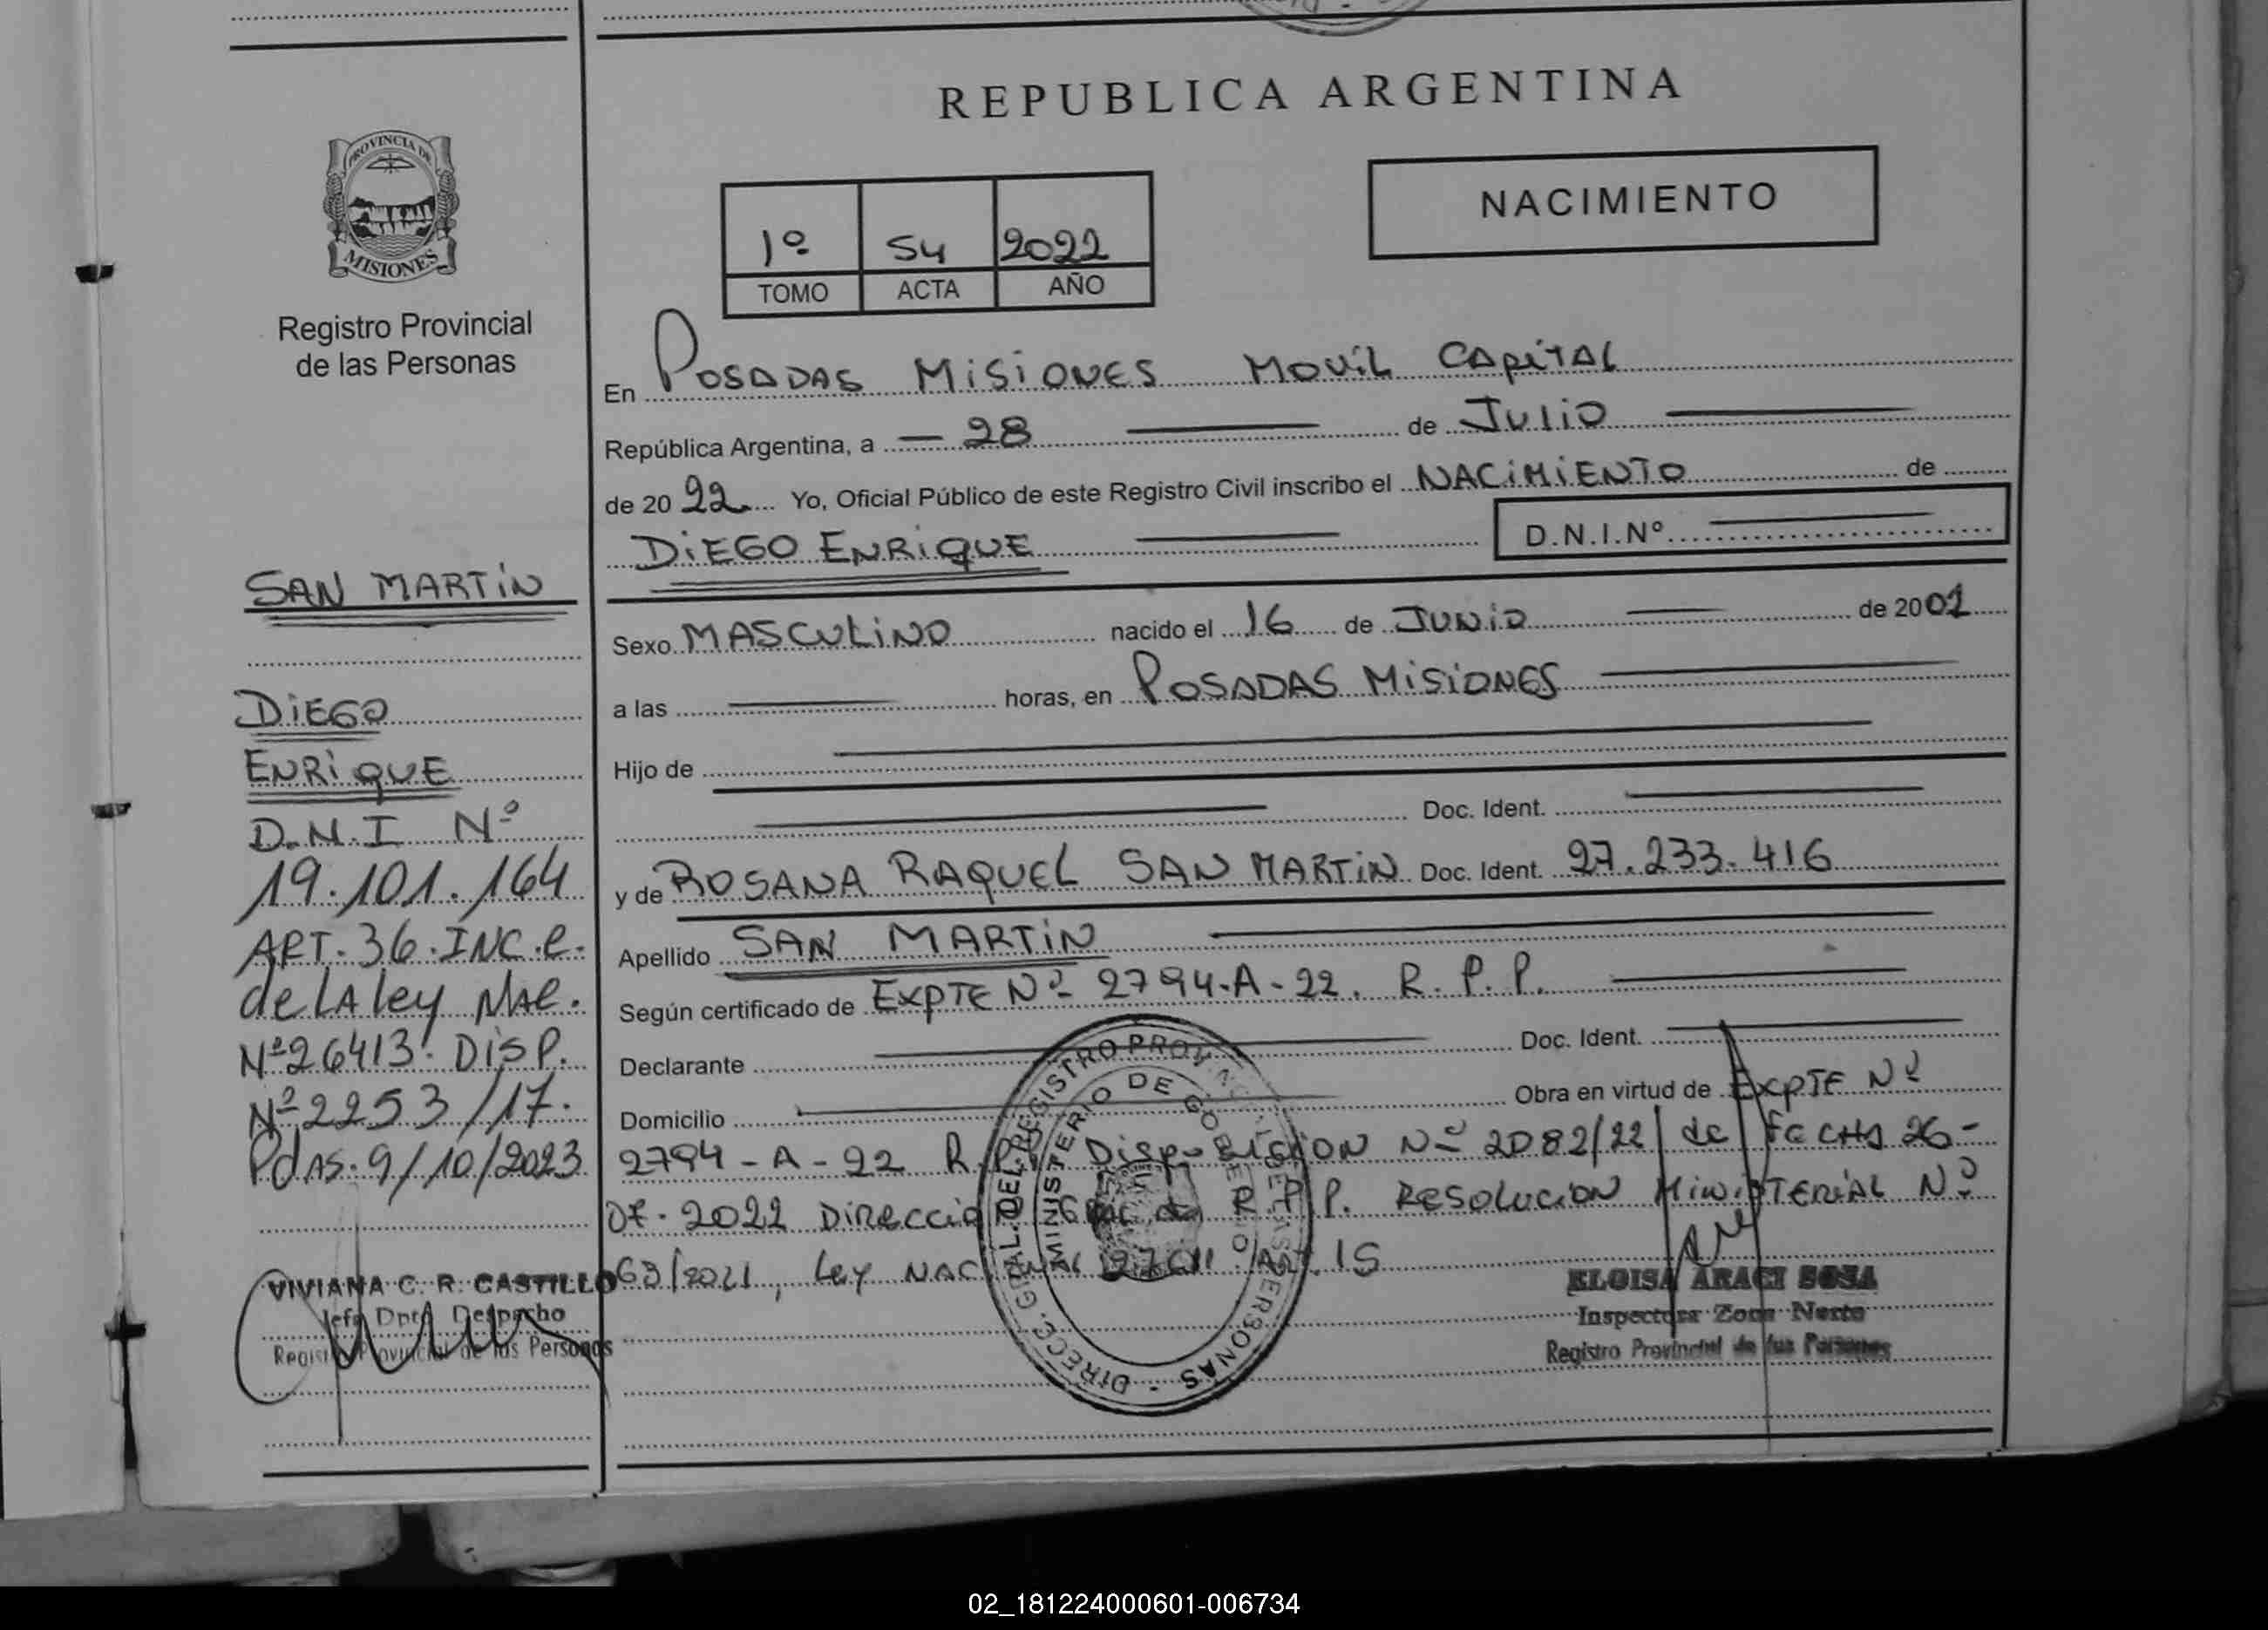 REPUBLICA ARGENTINA
PROVINCIA DE
MISIONES
Registro Provincial
de las Personas
NACIMIENTO
1º 54 2022
TOMO ACTA AÑO
En POSADAS MISIONES MOVIL CAPITAL
República Argentina, a — 28 — de JULIO —
de 20 22 Yo, Oficial Público de este Registro Civil inscribo el NACIMIENTO de
DIEGO ENRIQUE — D.N.I.Nº —
Sexo MASCULINO nacido el 16 de JUNIO — de 2002
a las — horas, en POSADAS MISIONES —
Hijo de —
— Doc. Ident. —
y de ROSANA RAQUEL SAN MARTIN Doc. Ident. 27.233.416
Apellido SAN MARTIN —
Según certificado de EXPTE Nº 2794-A-22. R.P.P. —
Declarante — Doc. Ident. —
Domicilio — Obra en virtud de EXPTE Nº
2794-A-22 R.P.P. DISPOSICION Nº 2082/22 de FECHA 26-
07-2022 DIRECCION GRAL de R.P.P. RESOLUCION MINISTERIAL Nº
63/2021, Ley NACIONAL 27611 Art. 15
ELOISA ARACI SOSA
Inspectora Zona Norte
Registro Provincial de las Personas
DIRECC. GRAL. DEL REGISTRO PROVINCIAL DE LAS PERSONAS -
MINISTERIO DE GOBIERNO
SAN MARTIN
DIEGO
ENRIQUE
D.N.I Nº
19.101.164
ART. 36. INC. C.
de LA ley NAC.
Nº 26413. DISP.
Nº 2253/17.
PdAS. 9/10/2023
VIVIANA C. R. CASTILLO
Jefa Dpto Despacho
Registro Provincial de las Personas
02_181224000601-006734